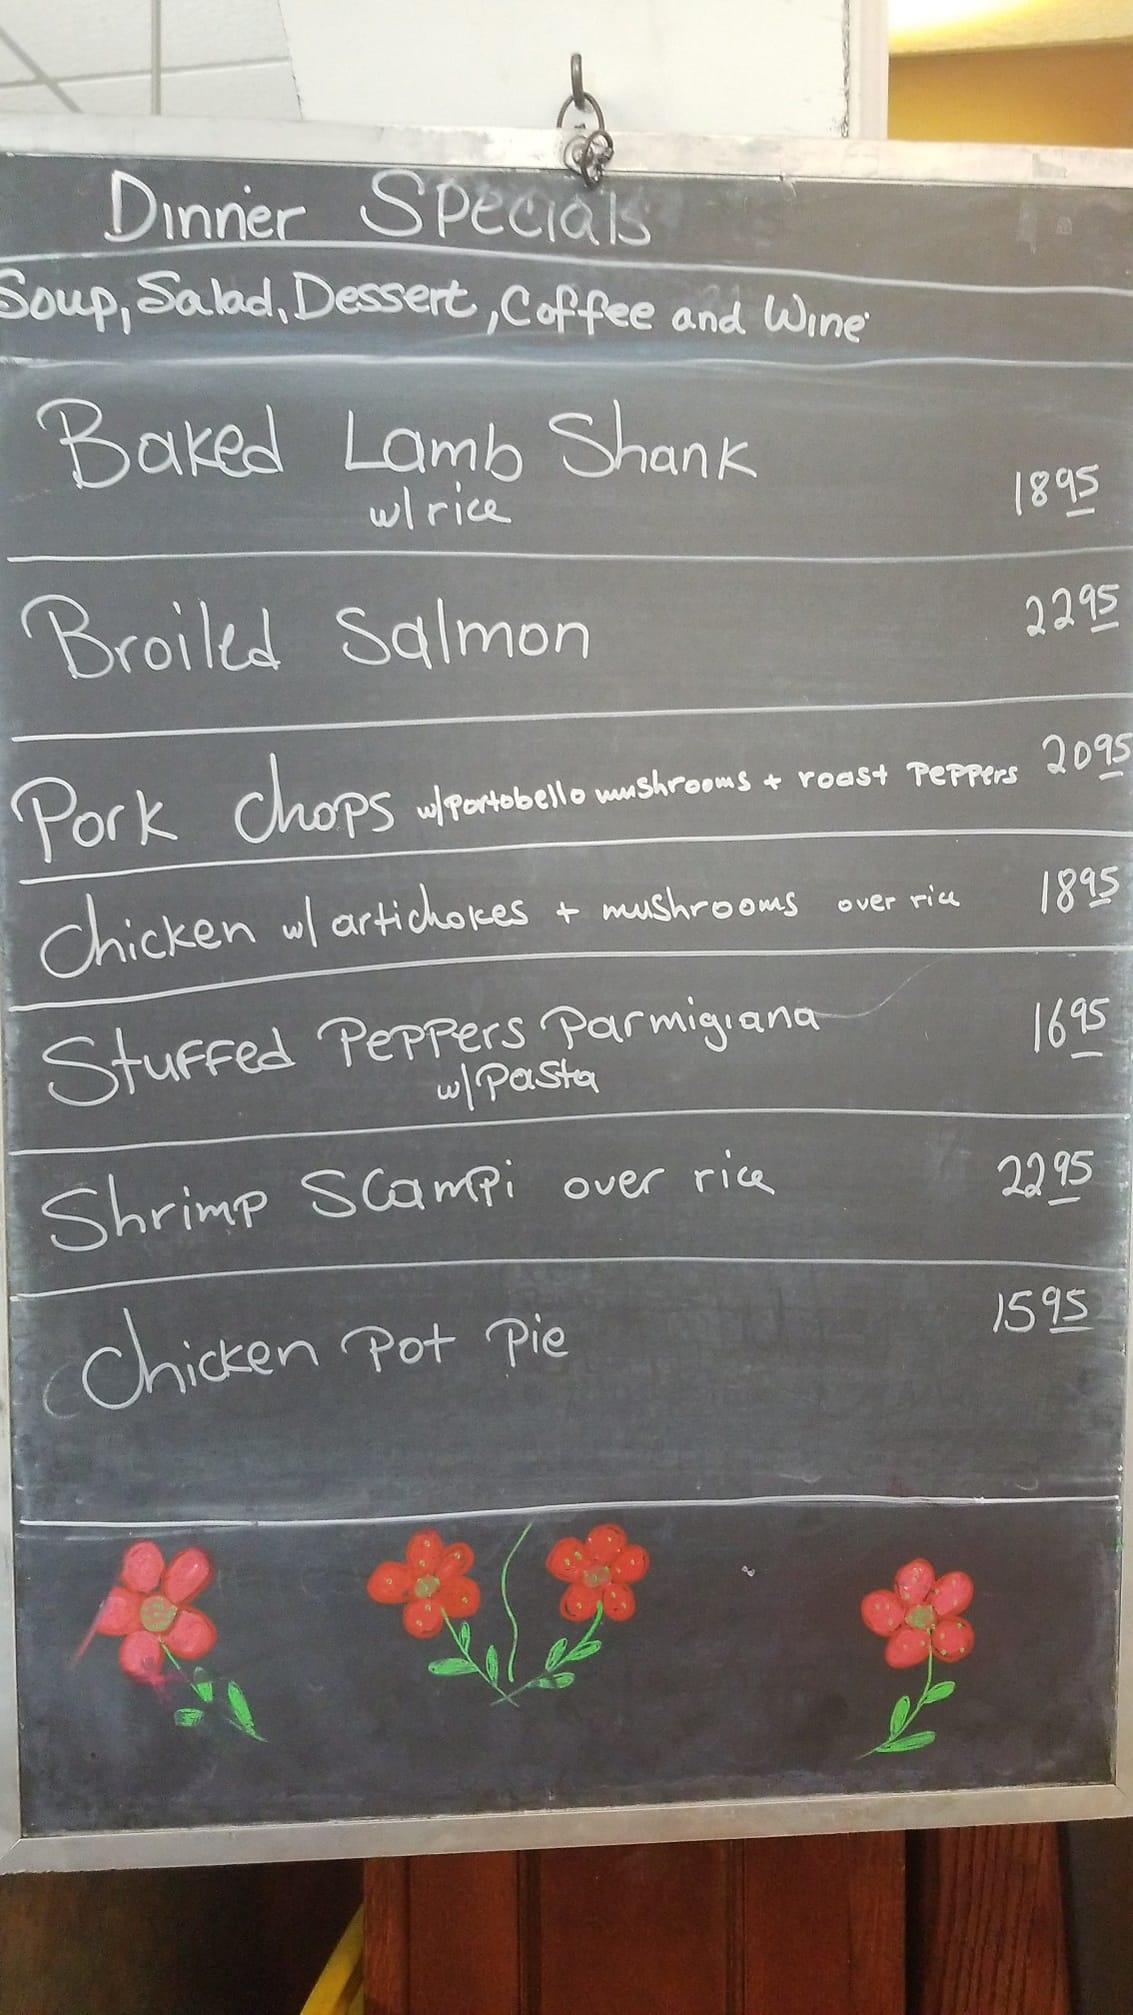 Dinner Specials
Soup, Salad, Dessert, Coffee and Wine
Baked Lamb Shank
w/ rice 1895
Broiled Salmon 2295
Pork Chops w/ Portobello mushrooms + roast Peppers 2095
Chicken w/ artichokes + mushrooms over rice 1895
Stuffed Peppers Parmigiana 1695
w/ Pasta
Shrimp Scampi over rice 2295
Chicken Pot Pie 1595